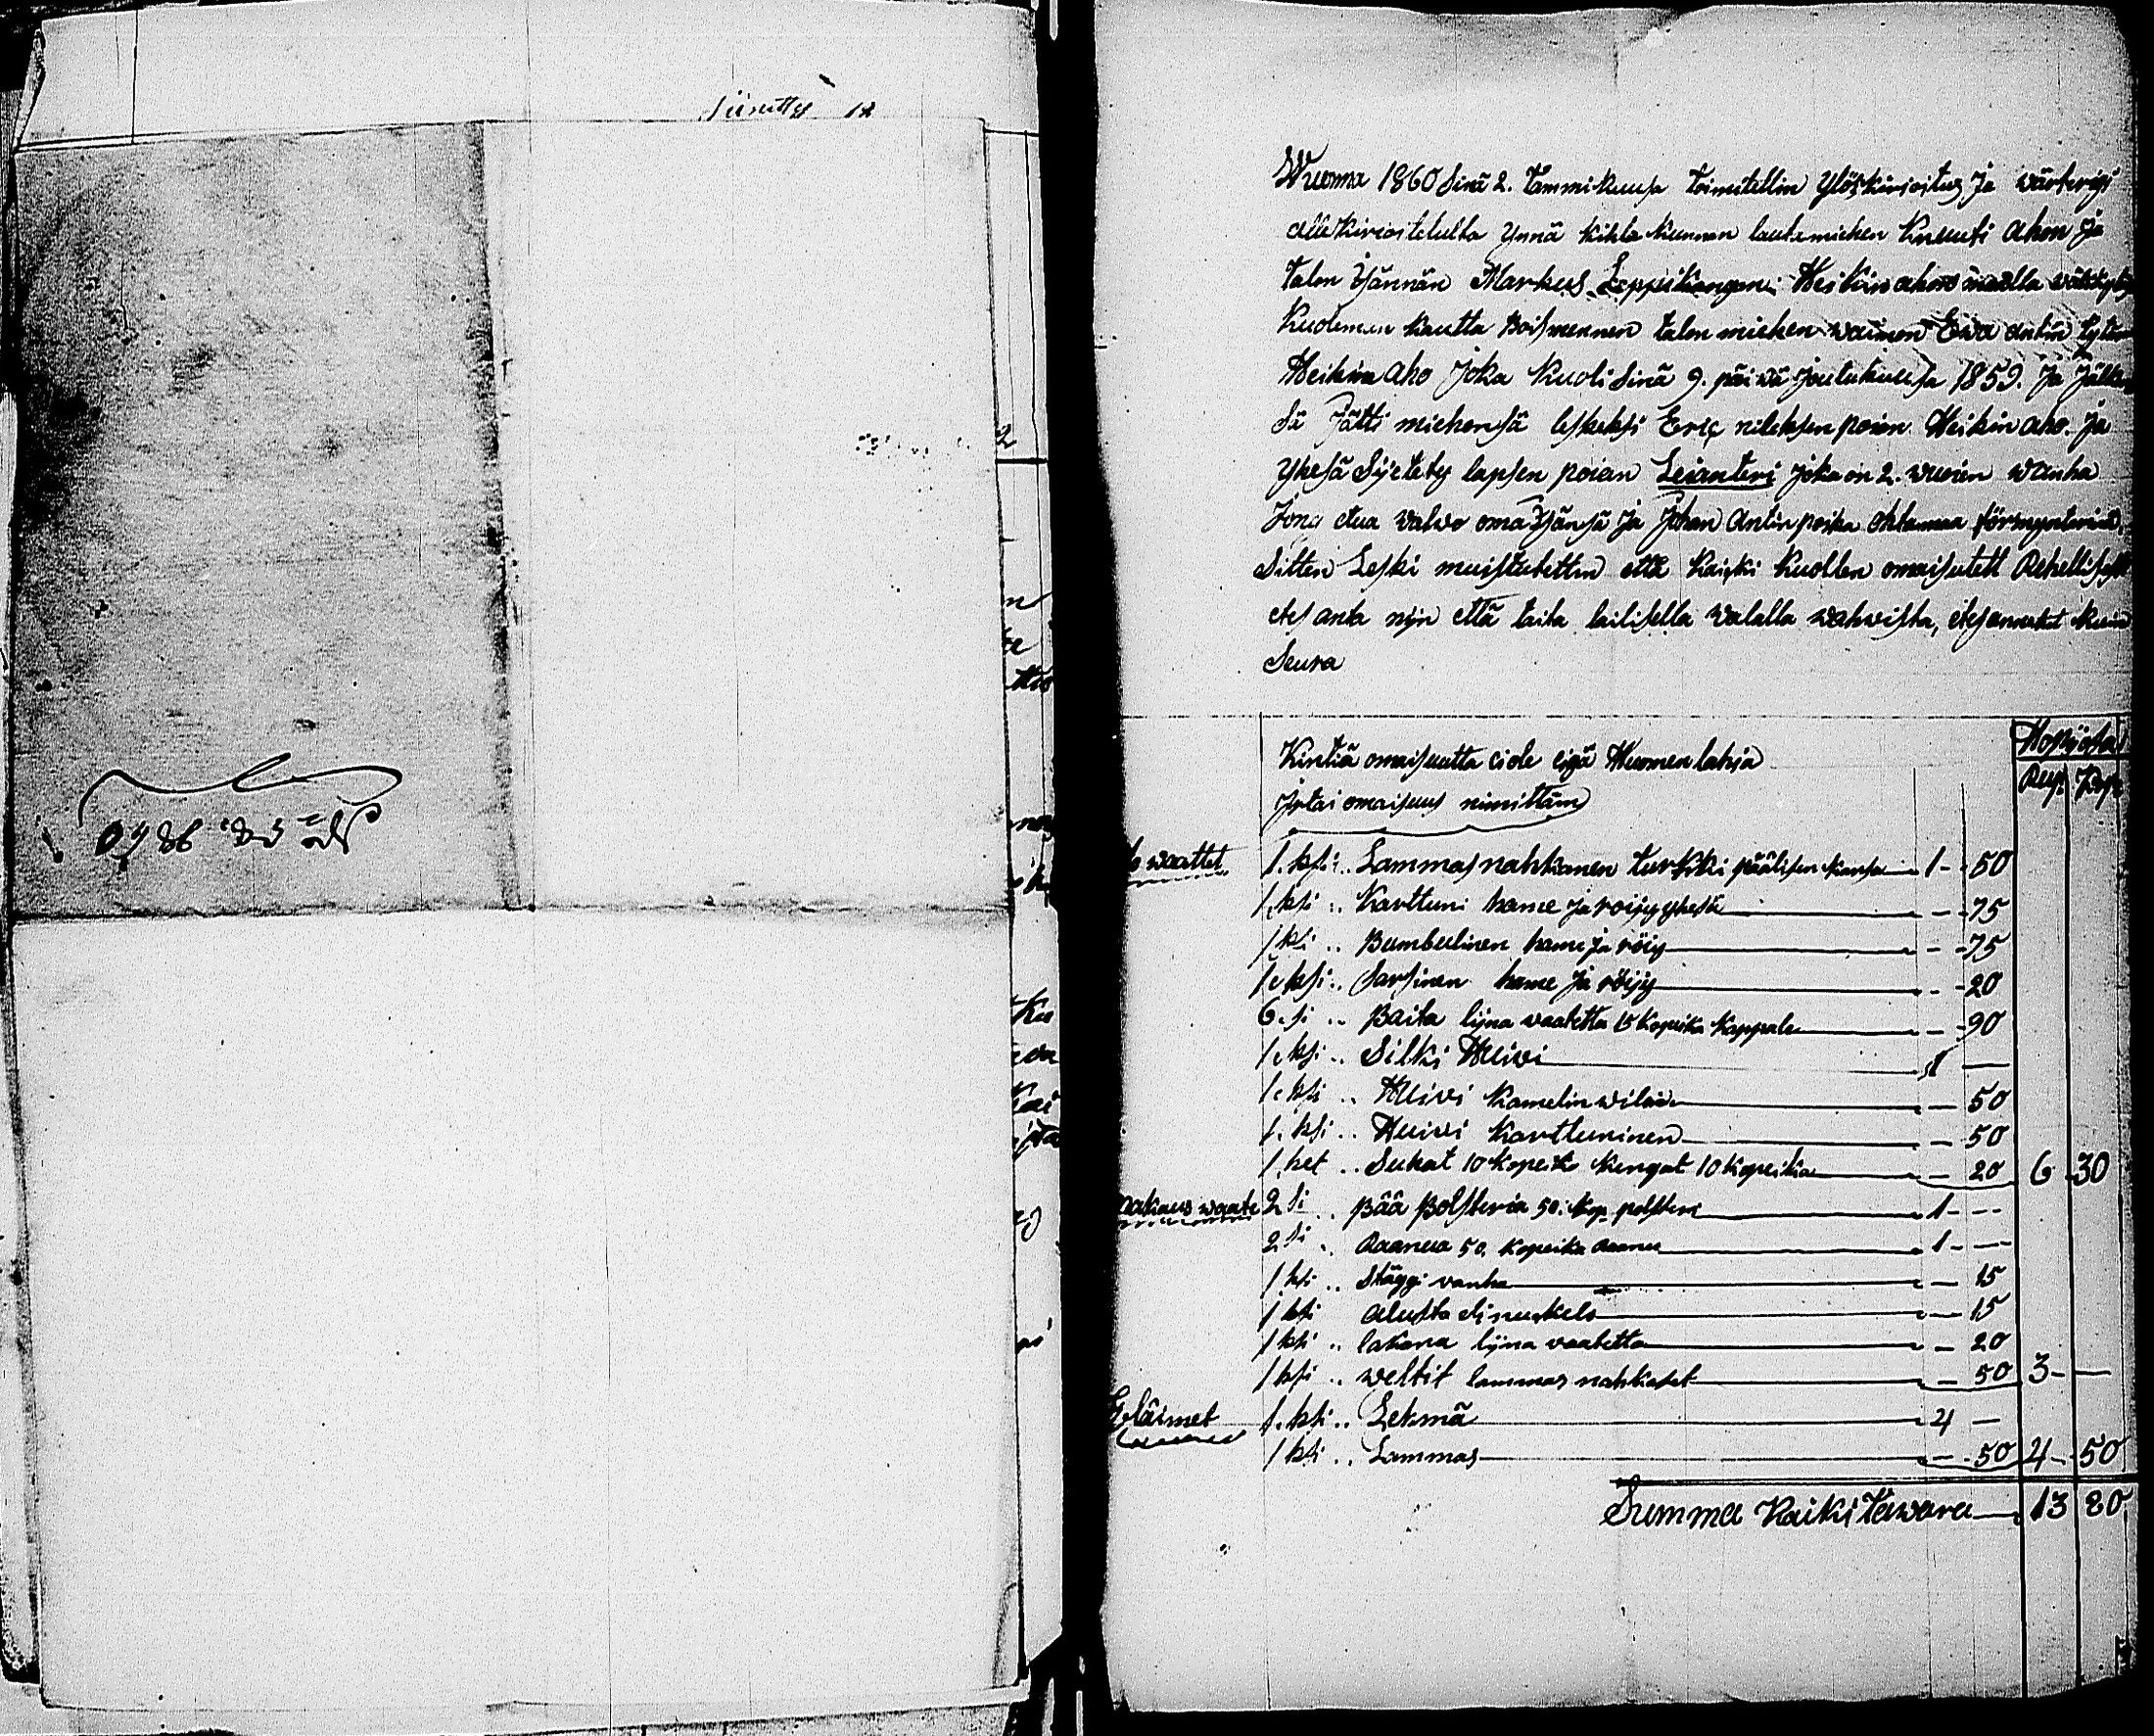 Wuonna 1860 Sinä 2. Tammikuusa toimitettin Ylöskirjoitus Ja wärterigs
allekirioitetulta Ynnä kihlakunnan lautamiehen Knuuti ahon ja
talon Isännän Markus Leppikangan Heikinahon maalla
Kuoleman kautta Poismennen talon miehen waimon Ewa antin tytär
Heikinaho Joka Kuoli Sinä 9. päiwä Joulukuusa 1859. Ja Jälken
Sä Jätti miehensä leskeksi Eric nileksenpoian Heikinaho. Ja
Yhesä Sijetety lapsen poian Leianteri joka on 2. wuoien wanha
Jong etua walvo oma Isänsä Ja Johan Antinpoika Ohtamaa förmynterinä.
Sitten Leski muistutettin että kaicki kuollen omaisutett Rehellisest
etes anta nijn että taita lailisella walalla wahwista, etesannetut kuin
Seura
Hopjasa
Kintiä omaisuutta eiole eigä Huomenlahja
Rup. Kop.
Jrtai omaisuus nimittäin
waattet 1. ksi .. Lammasnahkanen turkki päälisen kansa 1 - 50
1. ksi .. Karttuni hame ja roijy yhesä - - 75
1 ksi .. Bumbulinen hame ja röijy - - 75
1. ksi .. Sarsinen hame Ja röijy - - 20
6. si .. Paita lijna waatetta 15 Kopeika kappale - - 90
1. ksi .. Silki Huivi 1 —
1. ksi .. Huivi Kamelin wilain — 50
1. ksi .. Huivi Karttuninen — 50
1. het .. Sukat 10 kopeika kengat 10 kopeika — 20 6 30
makaus waate 2 Si .. Pää Bolsteria 50. kop. polsteri 1 - --
2 si .. Raanua 50. kopeika Raanu 1 - —
1 ksi .. Stäggi vanha — 15
1 ksi Alusta — 15
1 ksi .. lakana lijna vaatetta — 20
1 ksi .. weltit lammas nahkaset — 50 3 —
Eläimet 1. ksi .. Lehmä 4 —
1 ksi .. Lammas — 50 4 - 50
Summa Kaiki tawara 13 80